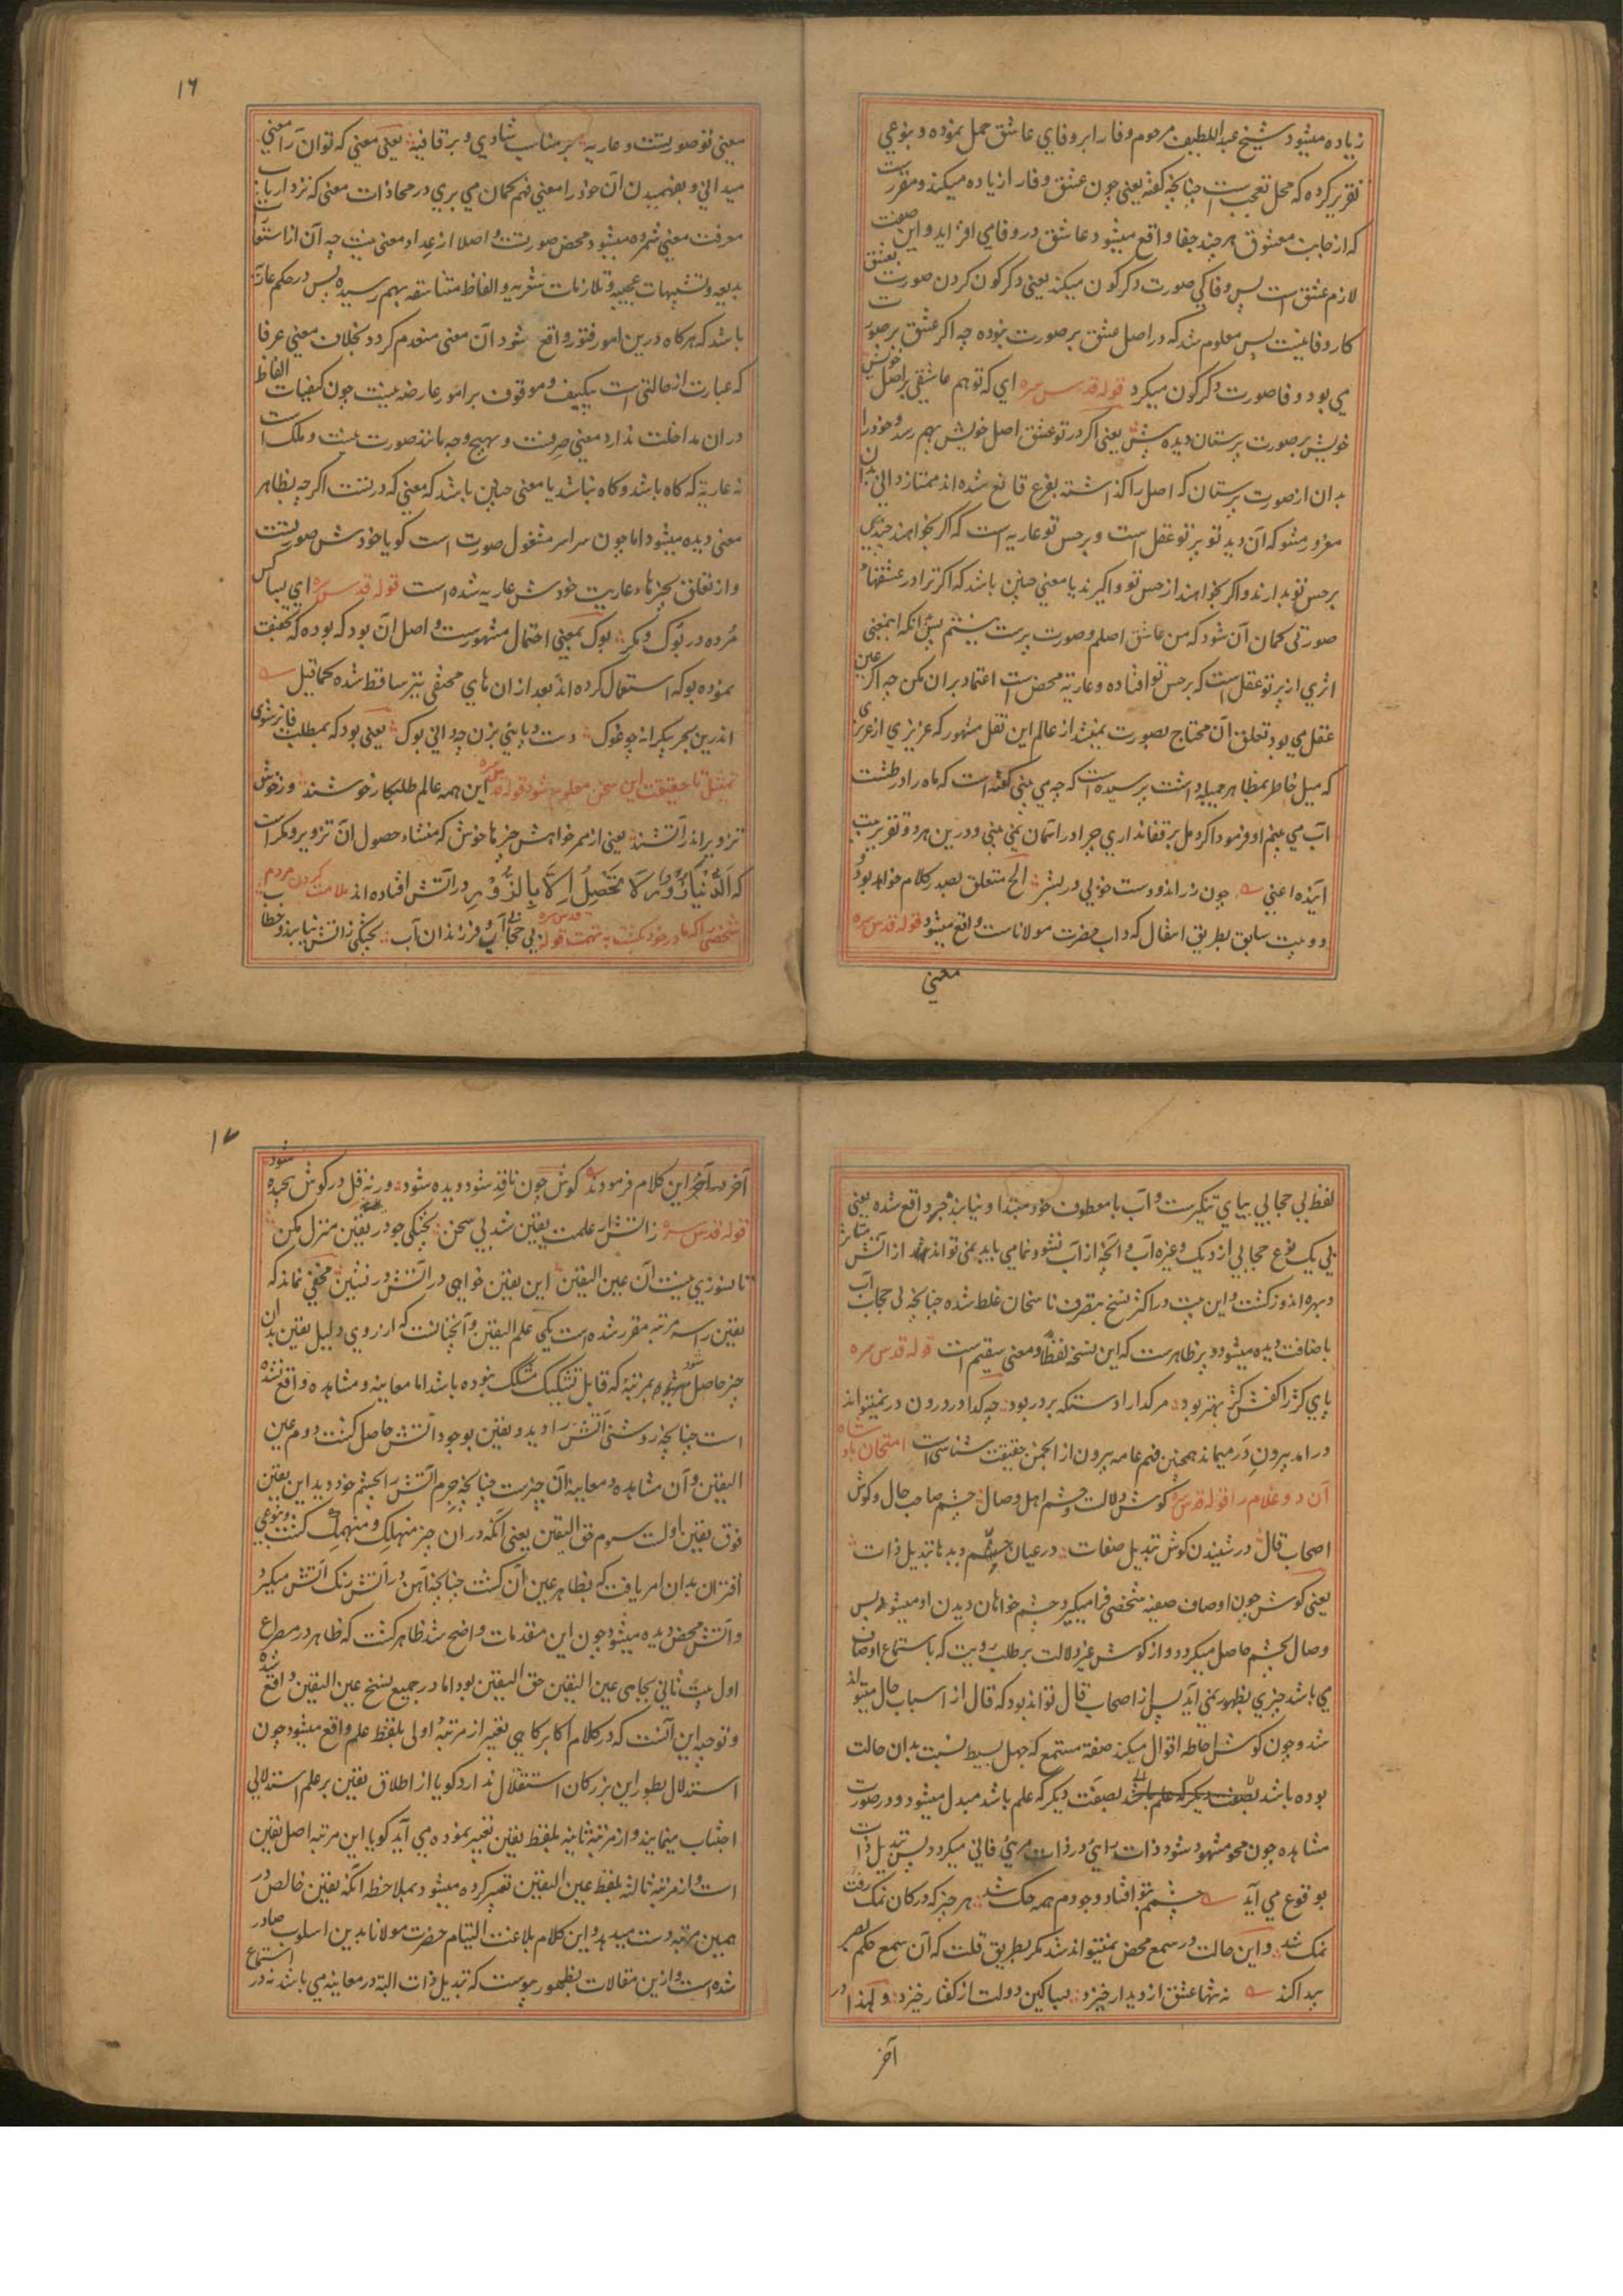 زیاده میشود شیخ عبداللطیف مرحوم وفا را بر وفای عاشق حمل نموده و بنوعی
تقریر کرده که محل تعجب است چنانچه گفته یعنی چون عشق وفا را زیاده میکند و مقررست
که از جانب معشوق هر چند جفا واقع میشود عاشق در وفا می افزاید و این صفت
لازم عشق است پس وفا کی صورت دکرکون میکند یعنی دکرکون کردن صورت بعشق
کار وفا نیست پس معلوم شد که در اصل عشق بر صورت نبوده چه اکر عشق بر صورت
می بود وفا صورت دکرکون میکرد قوله قدس سره ای که تو هم عاشقی بر اصل خویش
خویش بر صورت پرستان دیده بیش یعنی اکر در تو عشق اصل خویش بهم رسد و خود را
بدان از صورت پرستان که اصل را گذاشته بفرع قانع شده اند ممتاز دانی بدان
مغرور مشو که آن دید تو پرتو عقل است و بر حس تو عاریه است که اکر بخواهند چندی
بر حس تو بدارند و اکر بخواهند از حس تو واگیرند یا معنی چنین باشد که اکر ترا در عشقهاء
صورتی کمان آن شود که من عاشق اصلم و صورت پرست نیستم پس آنکه اینمعنی
اثری از پرتو عقل است که بر حس تو افتاده و عاریه محض است اعتماد بران مکن چه اکر عین
عقل می بود تعلق آن محتاج بصورت نمیشد از عالم این نقل مشهور که عزیزی از عزیزی
که میل خاطر بمظاهر جمیله داشت پرسیده است که چه می بینی گفته است که ماه را در طشت
آب می بینم او فرمود اکر دمل بر قفا نداری چرا در آسمان نمی بینی و درین هر دو تقریر بیت
آینده اعنی چون زر اندودست خوبی در بشر الخ متعلق بصدر کلام خواهد بود و
دو بیت سابق بطریق انتقال که داب حضرت مولاناست واقع میشود قوله قدس سره
معنی
۱۶
معنی تو صورتست و عاریه بر مناسب شادی و بر قافیه یعنی معنی که تو آن را معنی
میدانی و بفهمیدن آن خود را معنی فهم کمان می بری در محاذات معنی که نزد ارباب
معرفت معنی شمرده میشود محض صورتست و اصلا از عداد معنی نیست چه آن از استعارات
بدیعه و تشبیهات عجیبه و تلازمات شعریه و الفاظ متناسقه بهم رسیده پس در حکم عاریه
باشد که هرکاه درین امور فتور واقع شود آن معنی منعدم کردد بخلاف معنی عرفا
که عبارت از حالتی است بیکیف و موقوف بر امور عارضه نیست چون کیفیات الفاظ
در ان مداخلت ندارد معنی صرفست و بهیچ وجه مانند صورت نیست و ملک است
نه عاریه که کاه باشد و کاه نباشد یا معنی چنین باشد که معنی که در تست اکرچه بظاهر
معنی دیده میشود اما چون سراسر مشغول صورت است کویا خودش صورتست
و از تعلق بچیزهاء عاریت خودش عاریه شده است قوله قدس سره ای بسا کس
مرده در بوک و مکر بوک بمعنی احتمال مشهورست و اصل آن بود که بوده که تخفیف
نموده بوکه استعمال کرده اند بعد از ان های مختفی نیز ساقط شده کما قیل
اندرین بحر بیکرانه چو غوک دست و پائی بزن چه دانی بوک یعنی بود که بمطلب فائز شوی
تمثیل تا حقیقت این سخن معلوم شود قوله قدس سره این همه عالم طلبکار خوشند وز خوش
تزویر اندر آتشند یعنی از ممر خواهش چیزها خوش که منشاء حصول آن تزویر و مکر است
که الدُّنْیَا زُوْرٌ لَا تَحْصِلُ اِلَّا بِالزُّوْرِ در آتش افتاده اند ملامت کردن مردم
شخصی را که مادر خود کشت به تهمت قوله قدس سره بی حجابی آب و فرزندان آب پختگی ز آتش نیابند و خطاب
لفظ بی حجابی بیای تنکیرست و آب با معطوف خود مبتدا و نیابند خبر واقع شده یعنی
بی یک نوع حجابی از دیک و غیره آب و آنچه از آب نشو و نما می یابد نمی تواند شد از آتش متاثر
و بهره اندوز کشت و این بیت در اکثر نسخ بتصرف ناسخان غلط شده چنانچه بی حجاب آب
باضافت دیده میشود و بر ظاهرست که این نسخه لفظا و معنی سقیم است قوله قدس سره
پای کژ را کفش کژ بهتر بود مر کدا را دستکه بر در بود چه کدا در درون در نمیتواند
در امد بیرون در میماند همچنین فهم عامه بیرون از انجمن حقیقت شناسی است امتحان پادشاه
آن دو غلام را قوله قدس سره کوش دلالست و چشم اهل وصال چشم صاحب حال و کوش
اصحاب قال در شنیدن کوش تبدیل صفات در عیان چشم دیدها تبدیل ذات
یعنی کوش چون اوصاف صفیه شخصی فرا میکیرد چشم خواهان دیدن او میشود پس
وصال بچشم حاصل میکردد و از کوش غیر دلالت بر طلب رویت که باستماع اوصاف
می باشد چیزی بظهور نمی آید پس از اصحاب قال تواند بود که قال از اسباب حال میتواند
شد و چون کوش احاطه اقوال میکند صفة مستمع که جهل بسیط نسبت بدان حالت
بوده باشد بصفت دیکر که علم باشد مبدل میشود و در صورت
مشاهده چون محو مشهود شود ذات رائی در ذات مرئی فانی میکردد پس تبدیل ذات
بوقوع می آید چشمم بتو افتاد وجودم همه حک شد هر چیز که در کان نمک رفت
نمک شد و این حالت در سمع محض نمیتواند شد مکر بطریق قلت که آن سمع حکم بصر
پیدا کند نه تنها عشق از دیدار خیزد بسا کین دولت از کفتار خیزد و لهذا در
آخر
۱۷
آخر این کلام فرمودند کوش چون ناقد شود دیده شود ورنه قل در کوش پیچیده شود
قوله قدس سره ز آتش ار علمت یقین شد بی سخن پختگی جو در یقین منزل مکن
تا نسوزی نیست آن عین الیقین این یقین خواهی در آتش در نشین مخفی نماند که
یقین را سه مرتبه مقرر شده است یکی علم الیقین و آنچنانست که از روی دلیل یقین بدان
چیز حاصل شود بمرتبهٔ که قابل تشکیک مشکک نبوده باشد اما معاینه و مشاهده واقع نشده
است چنانچه روشنی آتش را دید و یقین بوجود آتش حاصل کشت دوم عین
الیقین و آن مشاهده و معاینهٔ آن چیزست چنانچه جرم آتش را بچشم خود دید این یقین
فوق یقین اولست سوم حق الیقین یعنی آنکه در ان چیز منهلک و منهمک کشت و بنوعی
اقتران بدان امر یافت که بظاهر عین آن کشت چنانچه آهن در آتش رنک آتش میکیرد
و آتش محض دیده میشود چون این مقدمات واضح شد ظاهر کشت که ظاهر در مصراع
اول بیت ثانی بجای عین الیقین حق الیقین بود اما در جمیع نسخ عین الیقین واقع شده
و توجیه این آنست که در کلام اکابر کاهی تعبیر از مرتبهٔ اولی بلفظ علم واقع میشود چون
استدلال بطور این بزرکان استقلال ندارد کویا از اطلاق یقین بر علم استدلالی
اجتناب مینمایند و از مرتبهٔ ثانیه بلفظ یقین تعبیر نموده می آید کویا این مرتبه اصل یقین
است و از مرتبه ثالثه بلفظ عین الیقین تعبیر کرده میشود بملاحظه آنکه یقین خالص در
همین مرتبه دست میدهد و این کلام بلاغت التیام حضرت مولانا بدین اسلوب صادر
شده است و ازین مقالات بظهور پیوست که تبدیل ذات البته در معاینه می باشد نه در استماع